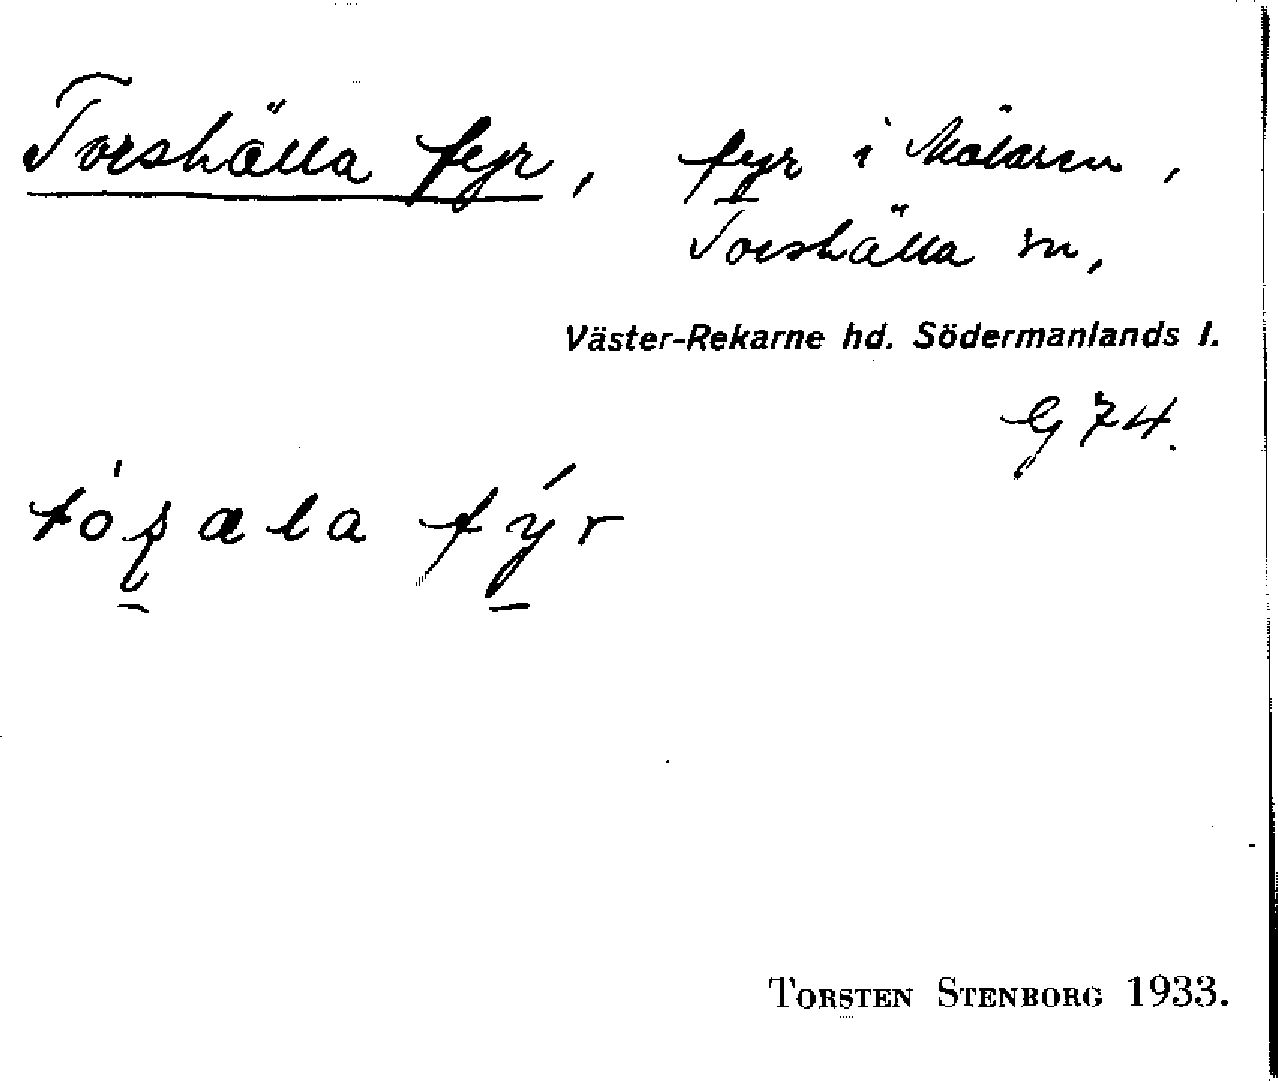 Torshälla fyr, fyr i Mälaren,
Torshälla sn,
Väster-Rekarne hd. Södermanlands l.
G 74.
fýr
TORSTEN STENBORG 1933.